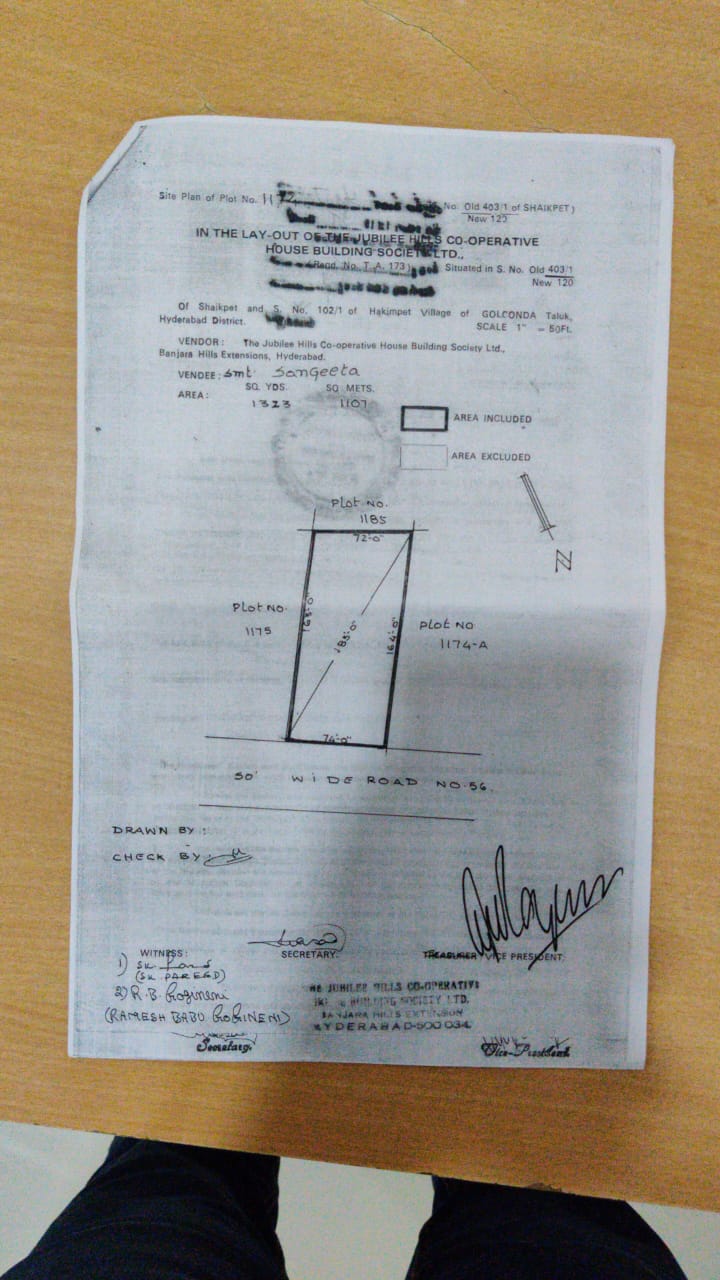 Site Plan of Plot No. 1174 No. Old 403/1 of SHAIKPET)
New 120
IN THE LAY-OUT OF THE JUBILEE HILLS CO-OPERATIVE
HOUSE BUILDING SOCIETY LTD.,
(Regd. No. T. A. 173) Situated in S. No. Old 403/1
New 120
Of Shaikpet and S. No. 102/1 of Hakimpet Village of GOLCONDA Taluk,
Hyderabad District. SCALE 1" = 50Ft.
VENDOR : The Jubilee Hills Co-operative House Building Society Ltd.,
Banjara Hills Extensions, Hyderabad.
VENDEE : Smt Sangeeta
SQ. YDS. SQ METS.
AREA : 1323 1107
AREA INCLUDED
AREA EXCLUDED
Plot No.
1185
72'-0"
N
Plot No.
1175
163'-0"
185'-0"
164'-0"
Plot No
1174-A
74'-0"
50' WIDE ROAD NO.56.
DRAWN BY :
CHECK BY :
WITNESS : SECRETARY. TREASURER VICE PRESIDENT.
1) SK.
(SK. PAREED)
2) R.B. Gogineni
(RAMESH BABU GOGINENI)
THE JUBILEE HILLS CO-OPERATIVE
BUILDING SOCIETY LTD.
BANJARA HILLS EXTENSION
HYDERABAD-500 034.
Secretary. Vice-President.